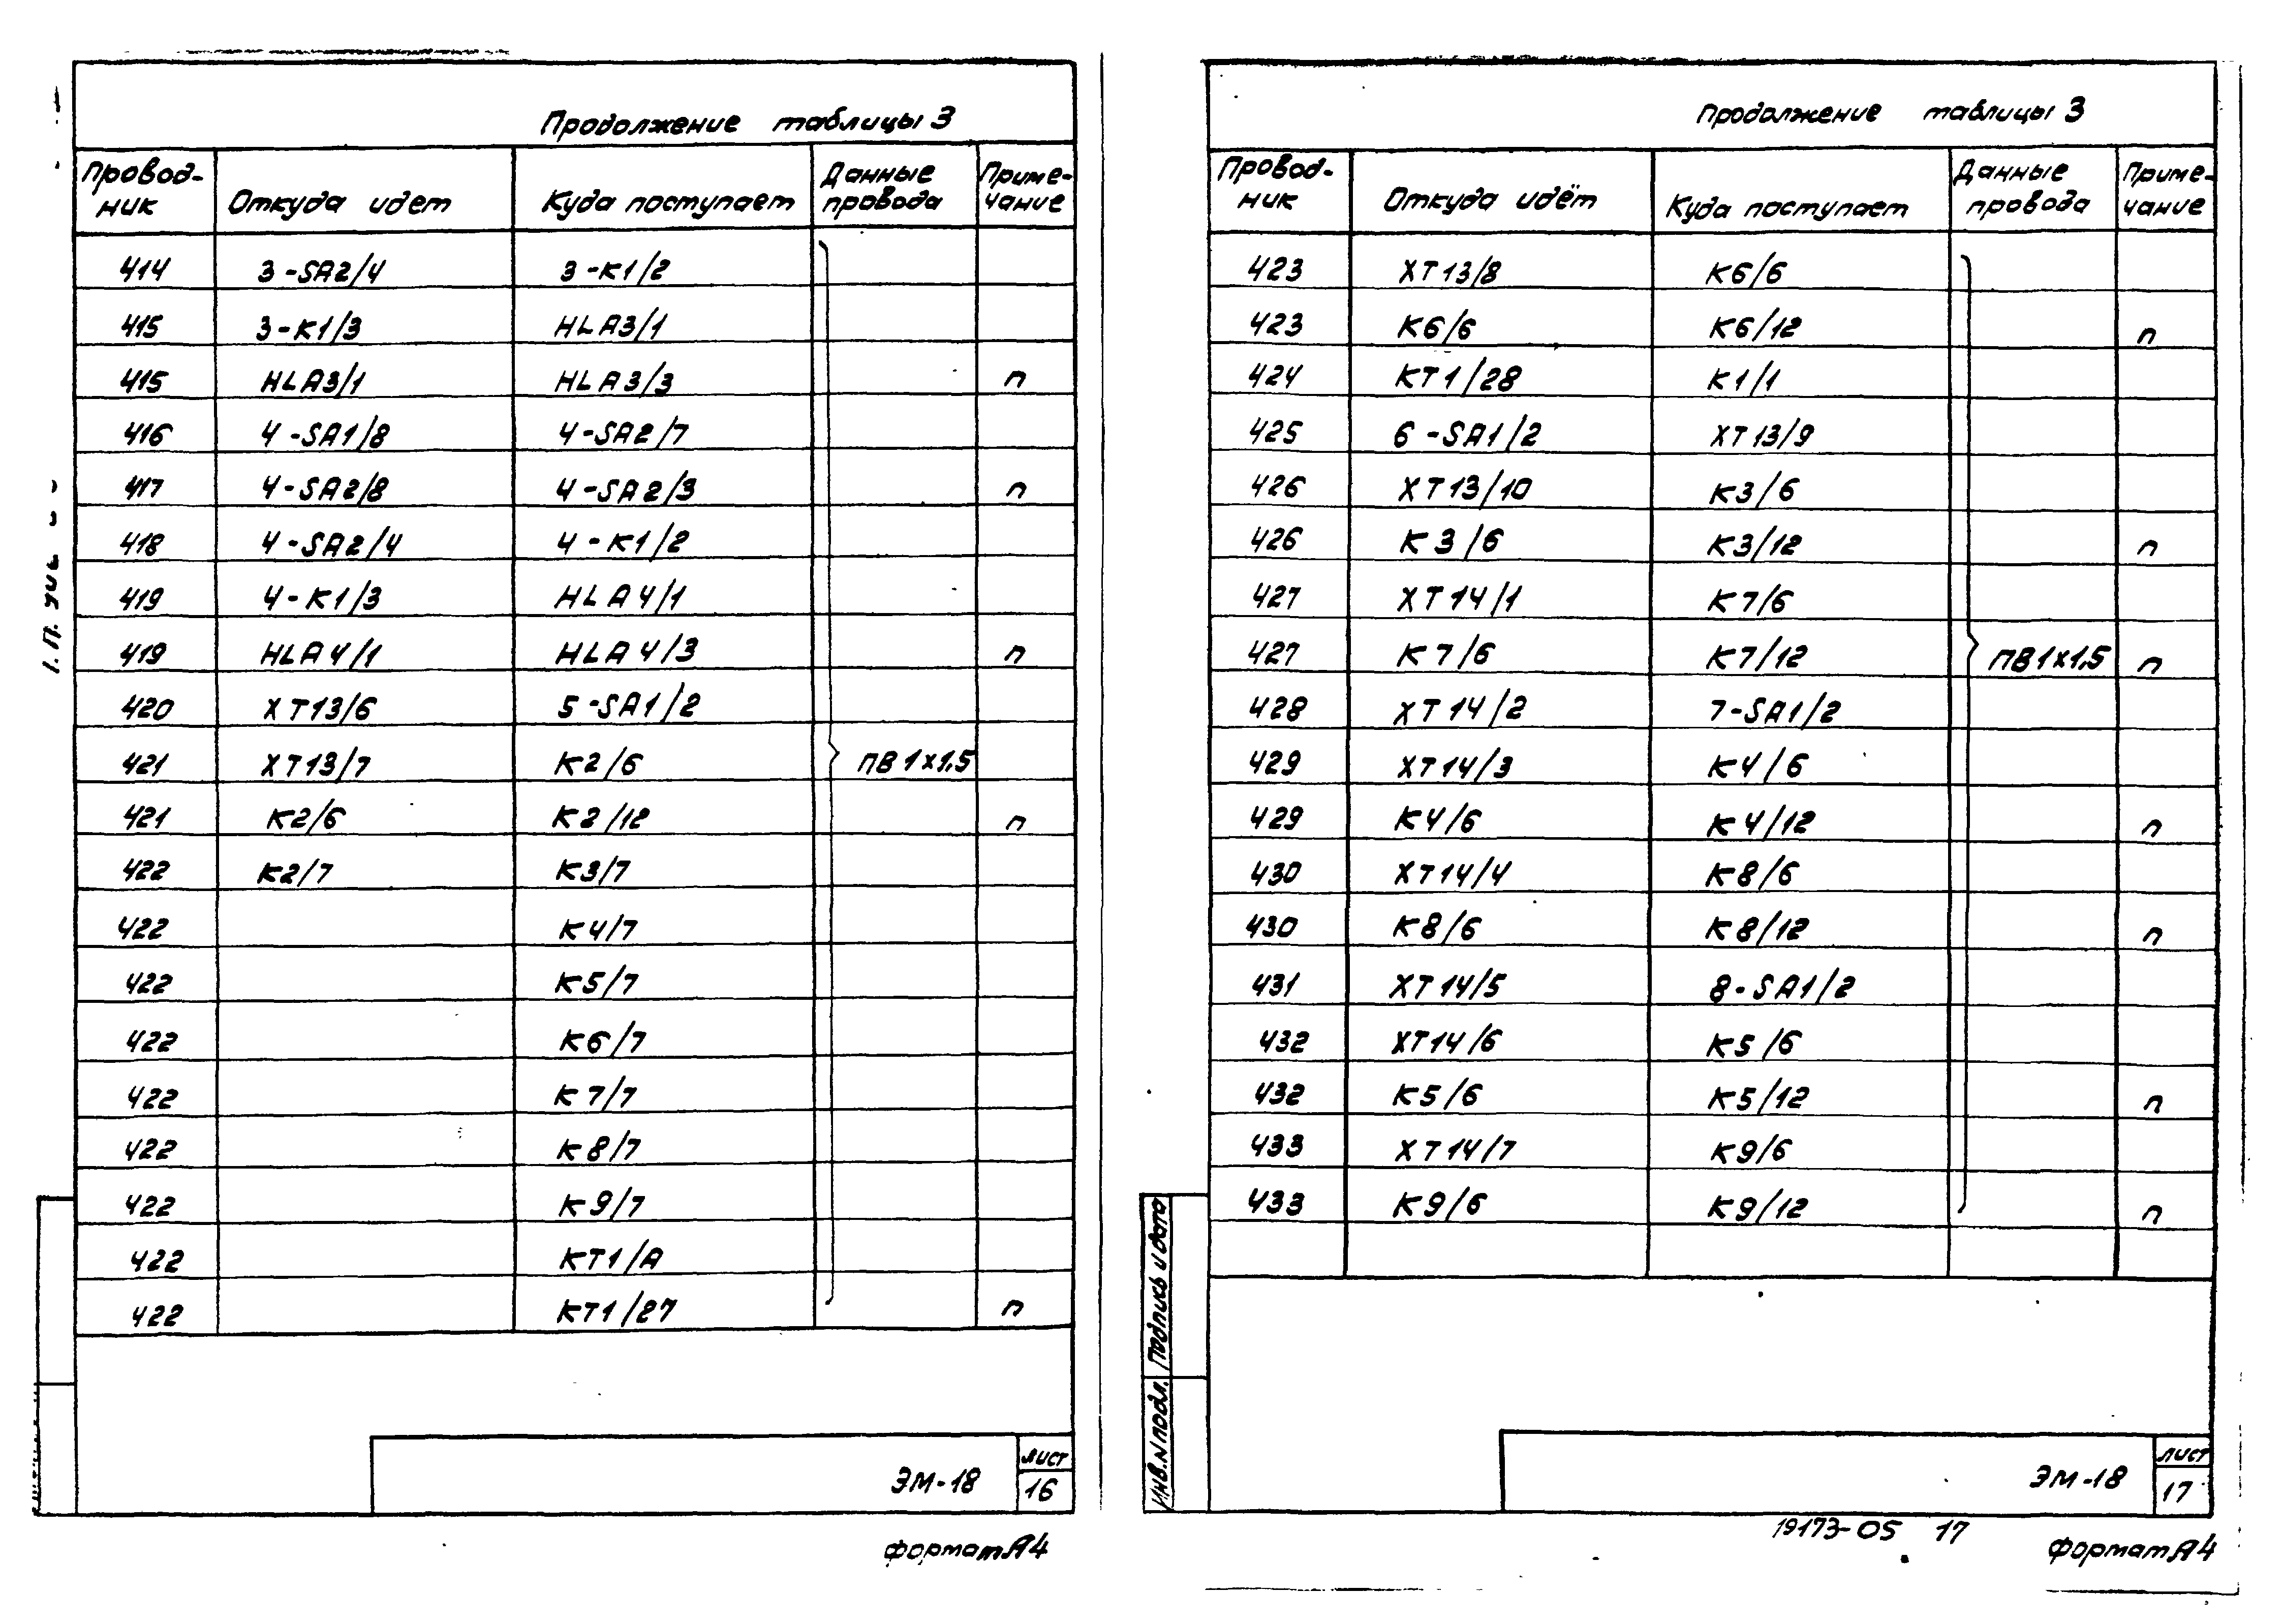 Продолжение таблицы 3
Провод- Данные Приме-
ник Откуда идет Куда поступает провода чание
414 3-SA2/4 3-K1/2
415 3-K1/3 HLA3/1
415 HLA3/1 HLA3/3 п
416 4-SA1/8 4-SA2/7
417 4-SA2/8 4-SA2/3 п
418 4-SA2/4 4-K1/2
419 4-K1/3 HLA4/1
419 HLA4/1 HLA4/3 п
420 XT13/6 5-SA1/2
421 XT13/7 K2/6 ПВ1х1,5
421 K2/6 K2/12 п
422 K2/7 K3/7
422 K4/7
422 K5/7
422 K6/7
422 K7/7
422 K8/7
422 K9/7
422 KT1/A
422 KT1/27 п
ЭМ-18
лист
16
формат А4
Продолжение таблицы 3
Провод- Данные Приме-
ник Откуда идёт Куда поступает провода чание
423 XT13/8 K6/6
423 K6/6 K6/12 п
424 KT1/28 K1/1
425 6-SA1/2 XT13/9
426 XT13/10 K3/6
426 K3/6 K3/12 п
427 XT14/1 K7/6
427 K7/6 K7/12 ПВ1х1,5 п
428 XT14/2 7-SA1/2
429 XT14/3 K4/6
429 K4/6 K4/12 п
430 XT14/4 K8/6
430 K8/6 K8/12 п
431 XT14/5 8-SA1/2
432 XT14/6 K5/6
432 K5/6 K5/12 п
433 XT14/7 K9/6
433 K9/6 K9/12 п
Инв.N подл. Подпись и дата
ЭМ-18
лист
17
19173-05 17
формат А4